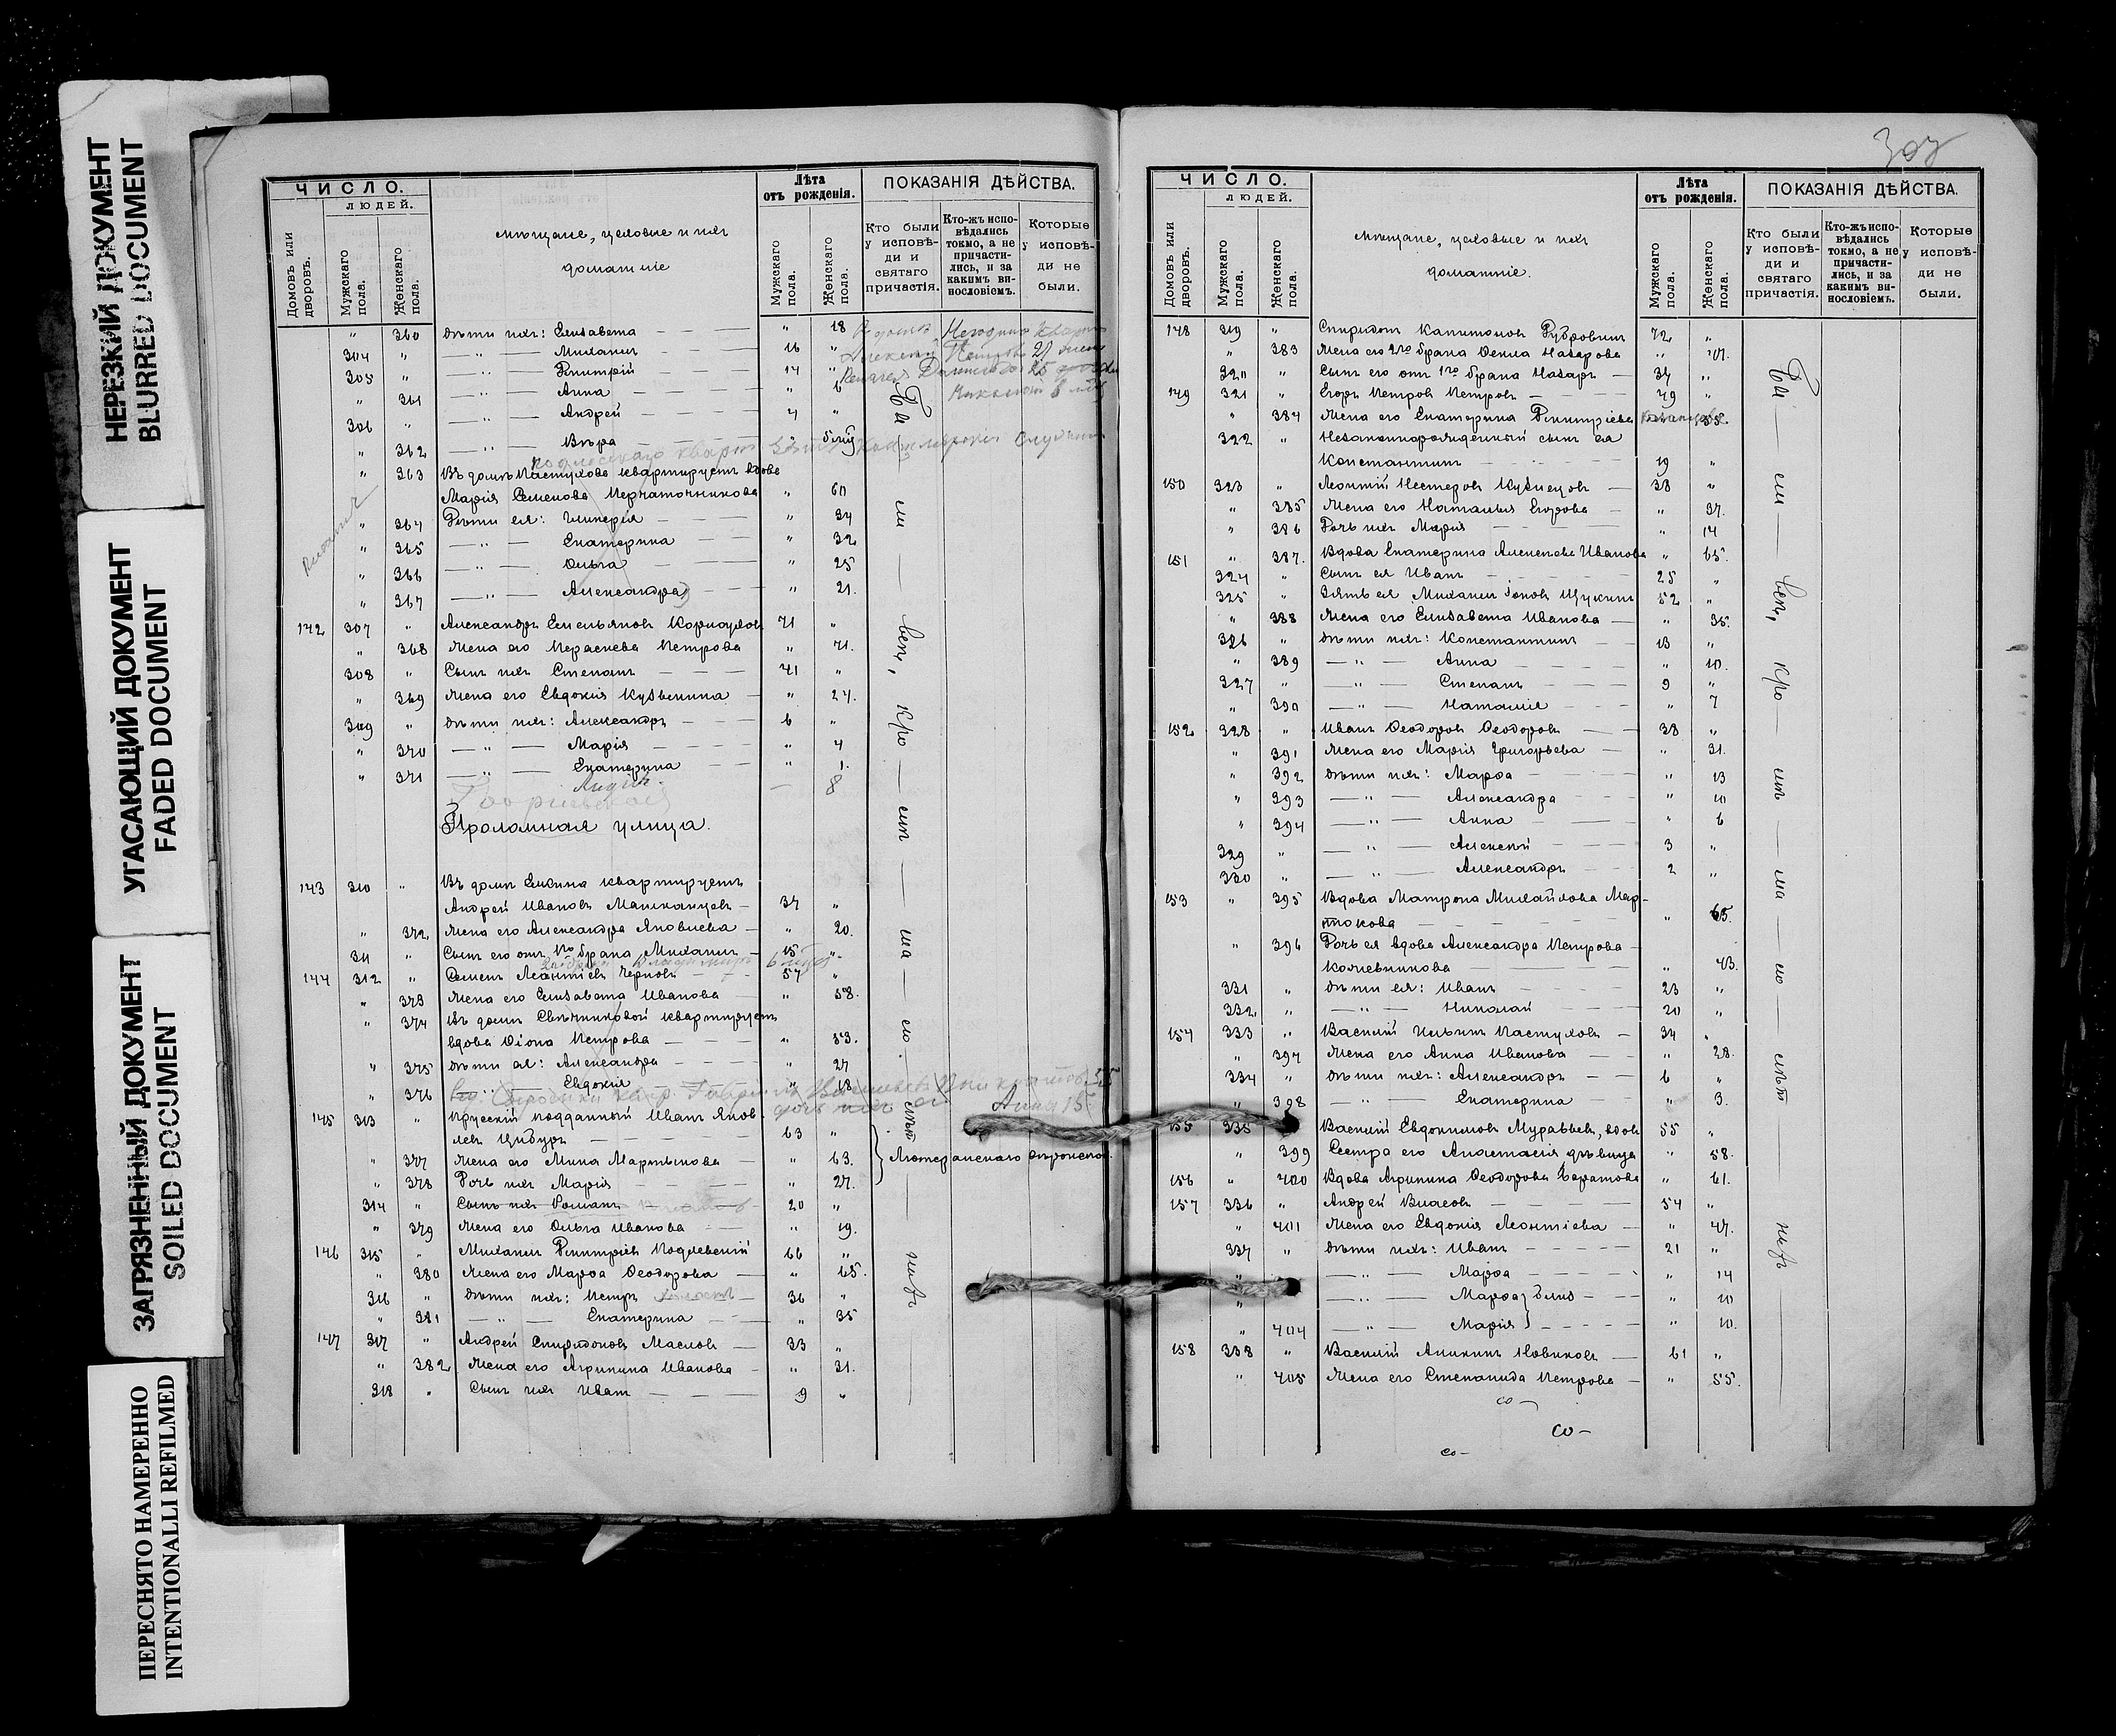 НЕРЕЗКИЙ ДОКУМЕНТ
BLURRED DOCUMENT
УГАСАЮЩИЙ ДОКУМЕНТ
FADED DOCUMENT
ЗАГРЯЗНЕННЫЙ ДОКУМЕНТ
SOILED DOCUMENT
ПЕРЕСНЯТО НАМЕРЕННО
INTENTIONALLI REFILMED
ЧИСЛО.
ЛЮДЕЙ.
Домовъ или дворовъ.
Мужскаго пола.
Женскаго пола.
Мѣщане, цеховые и ихъ
домашніе
Лѣта
отъ рожденія.
Мужскаго пола.
Женскаго пола.
ПОКАЗАНІЯ ДѢЙСТВА.
Кто были у исповѣ-ди и святаго причастія.
Кто-жъ испо-вѣдались токмо, а не причасти-лись, и за какимъ ви-нословіемъ.
Которые у исповѣ-ди не были.
" 360 дѣти ихъ: Елисавета " 18
304 " — " — Михаилъ 16 "
305 " — " — Димитрій 14 "
" 361 — " — Анна "
306 " — " — Андрей 4 "
" 362 — " — Вѣра "
" 363 Въ домѣ Пастухова квартируетъ вдова
Марія Семенова Перчаточникова " 60
" 364 Дѣти ея: Гликерія " 34
" 365 — " — Екатерина " 32
" 366 — " — Ольга " 25
" 367 — " — Александра " 21.
142 307 " Александръ Емельяновъ 71 "
" 368 Жена его Параскева Петрова " 71.
308 " Сынъ ихъ Степанъ 41 "
" 369 Жена его Евдокія Кузьмина " 27.
309 " дѣти ихъ: Александръ 6 "
" 370 — " — Марія " 4
" 371 — " — Екатерина " 1.
Лидія — 8
Проломная улица.
143 310 " Въ домѣ Елкина квартируетъ
Андрей Ивановъ 37 "
" 372 Жена его Александра Яковлева " 20.
311 " Сынъ его отъ 1го брака Михаилъ 15 "
144 312 " Семенъ Леонтіевъ Черновъ 57 "
" 373 Жена его Елисавета Иванова " 58.
" 374 Въ домѣ Свѣчниковой квартируетъ
вдова Фіона Петрова " 53.
" 375 дѣти ея: Александра " 27
" 376 — " — Евдокія " 18
145 313 " Прусскій подданный Иванъ Яков-
левъ 63 "
" 377 Жена его Мина Мартынова " 63.
" 378 Дочь ихъ Марія " 27.
Лютеранскаго
314 " Сынъ ихъ Романъ 20 "
" 379 Жена его Ольга Иванова " 19.
146 315 " Михаилъ Димитріевъ Подлевскій 66 "
" 380 Жена его Марѳа Ѳеодорова " 65.
316 " дѣти ихъ: Петръ 36 "
" 381 — " — Екатерина " 35
147 317 " Андрей Спиридоновъ Масловъ 33 "
" 382 Жена его Агрипина Иванова " 31.
318 " Сынъ ихъ Иванъ 9 "
Бы — ли — вси, кро — мѣ — ма — ло — лѣт — нихъ
ЧИСЛО.
ЛЮДЕЙ.
Домовъ или дворовъ.
Мужскаго пола.
Женскаго пола.
Мѣщане, цеховые и ихъ
домашніе.
Лѣта
отъ рожденія.
Мужскаго пола.
Женскаго пола.
ПОКАЗАНІЯ ДѢЙСТВА.
Кто были у исповѣ-ди и святаго причастія.
Кто-жъ испо-вѣдались токмо, а не причасти-лись, и за какимъ ви-нословіемъ.
Которые у исповѣ-ди не были.
148 319 " Спиридонъ Капитоновъ Дубровинъ 72 "
" 383 Жена его 2го брака Ѳекла Назарова "
320 " Сынъ его отъ 1го брака Назаръ 37 "
149 321 " Егоръ Петровъ Петровъ 49 "
" 384 Жена его Екатерина Димитріева " 55.
322 " Незаконнорожденный сынъ ея
Константинъ 19 "
150 323 " Леонтій Нестеровъ Кузнецовъ 38 "
" 385 Жена его Наталья Егорова " 37.
" 386 Дочь ихъ Марія " 14
151 " 387. Вдова Екатерина Алексѣева Иванова " 65.
324 " Сынъ ея Иванъ 25 "
325 " Зять ея Михаилъ Іоновъ Щукинъ 52 "
" 388 Жена его Елисавета Иванова " 35.
326 " дѣти ихъ: Константинъ 13 "
" 389 — " — Анна " 10.
327 " — " — Степанъ 9 "
" 390 — " — Наталія " 7
152 328 " Иванъ Ѳеодоровъ Ѳеодоровъ 38 "
" 391 Жена его Марія Григорьева " 31.
" 392 дѣти ихъ: Марѳа " 13
" 393 — " — Александра " 10
" 394 — " — Анна " 6
329 " — " — Алексѣй 3 "
330 " — " — Александръ 2 "
153 " 395 Вдова Матрона Михайлова Мар-
" 65.
" 396 Дочь ея вдова Александра Петрова
Кожевникова " 43.
331 " дѣти ея: Иванъ 23 "
332 " — " — Николай 20 "
154 333 " Василій Ильинъ Пастуховъ 34 "
" 397 Жена его Анна Иванова " 28.
334 " дѣти ихъ: Александръ 6 "
" 398 — " — Екатерина " 3.
155 335 " Василій Евдокимовъ Муравьевъ, вдовъ 55 "
" 399 Сестра его Анастасія дѣвица " 58.
156 " 400 Вдова Агрипина Ѳеодорова " 61.
157 336 " Андрей Власовъ 54 "
" 401 Жена его Евдокія Леонтіева " 47.
337 " дѣти ихъ: Иванъ 21 "
— " — Марѳа " 14
" — " — Марѳа } близ " 10
" 404 — " — Марія } " 10.
158 338 " Василій Аникинъ Новиковъ 61 "
" 405 Жена его Степанида Петрова " 55.
Бы — ли — вси, кро — мѣ — ма — ло — лѣт — нихъ
со-
со-
со-